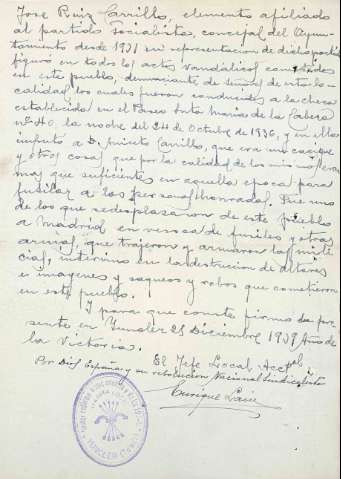 Jose Ruiz Carrillo, elemento afiliado
al partido socialista, concejal del Ayun-
tamiento desde 1931 en representacion de dicho partido
figuró en todos los actos vandalicos cometidos
en este pueblo, denunciante de señores de esta lo-
calidad los cuales fueron conducidos a la checa
establecida en el Paseo Santa Maria de la Cabeza
nº 40, la noche del 24 de Octubre de 1936, y en ellos
insultó a D. Carrillo, que era un cacique
y otras cosas que por la calidad de los mismos eran
mas que suficientes en aquella epoca para
fusilar a las personas honradas. Fue uno
de los que se desplazaron de este pueblo
a Madrid en busca de fusiles y otras
armas, que trajeron y armaron las mili-
cias, intervino en la destruccion de altares
e imagenes y saqueos y robos que cometieron
en este pueblo.
Y para que conste firmo la pre-
sente en Yuncler 25 Diciembre 1939 Año de
la Victoria.
El Jefe Local Acctal
Por Dios España y su revolucion Nacional Sindicalista
Enrique
YUNCLER